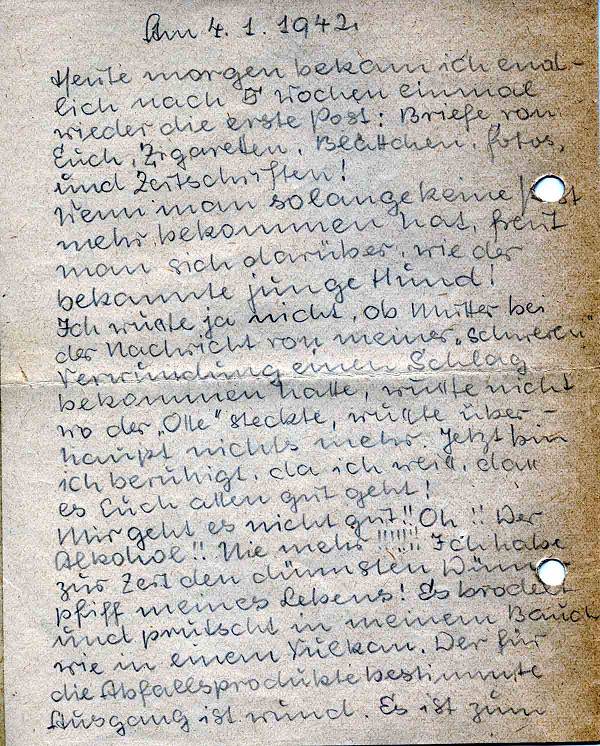 Am 4. 1. 1942.
Heute morgen bekam ich end-
lich nach 5 Wochen einmal
wieder die erste Post: Briefe von
Euch, Zigaretten, Blättchen, Fotos,
und Zeitschriften!
Wenn man solange keine Post
mehr bekommen hat, freut
man sich darüber, wie der
bekannte junge Hund!
Ich wußte ja nicht, ob Mutter bei
der Nachricht von meiner „schweren"
Verwundung einen Schlag
bekommen hatte, wußte nicht
wo der „Olle" steckte, wußte über-
haupt nichts mehr. Jetzt bin
ich beruhigt, da ich weiß, daß
es Euch allen gut geht!
Mir geht es nicht gut!! Oh!! Der
Alkohol!! Nie mehr!!!!!!! Ich habe
zur Zeit den dünnsten
pfiff meines Lebens! Es brodelt
und prutscht in meinem Bauch
wie in einem Vulkan. Der für
die Abfallsprodukte bestimmte
Ausgang ist wund. Es ist zum